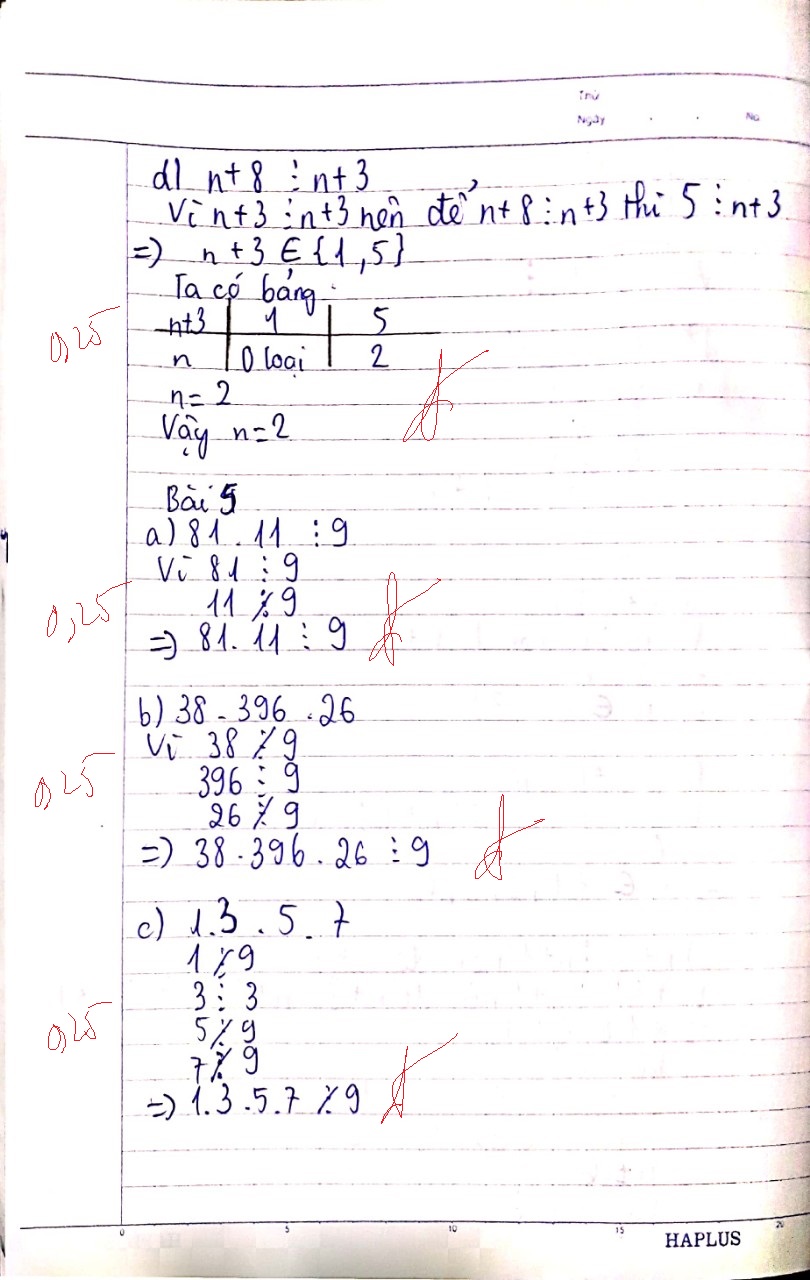 Thứ
Ngày . . No
d) n+8 ⋮ n+3
Vì n+3 ⋮ n+3 nên để n+8 ⋮ n+3 thì 5 ⋮ n+3
=) n+3 ∈ {1,5}
Ta có bảng:
n+3 | 1 | 5
0,25
n | 0 loại | 2
n=2
Vậy n=2
Bài 5
a) 81.11 ⋮ 9
Vì 81 ⋮ 9
11 ⋮̸ 9
0,25
=) 81.11 ⋮ 9
b) 38.396.26
Vì 38 ⋮̸ 9
396 ⋮ 9
0,25
26 ⋮̸ 9
=) 38.396.26 ⋮ 9
c) 1.3.5.7
1 ⋮̸ 9
3 ⋮ 3
5 ⋮̸ 9
0,25
7 ⋮̸ 9
=) 1.3.5.7 ⋮̸ 9
0 5 10 15 20
HAPLUS